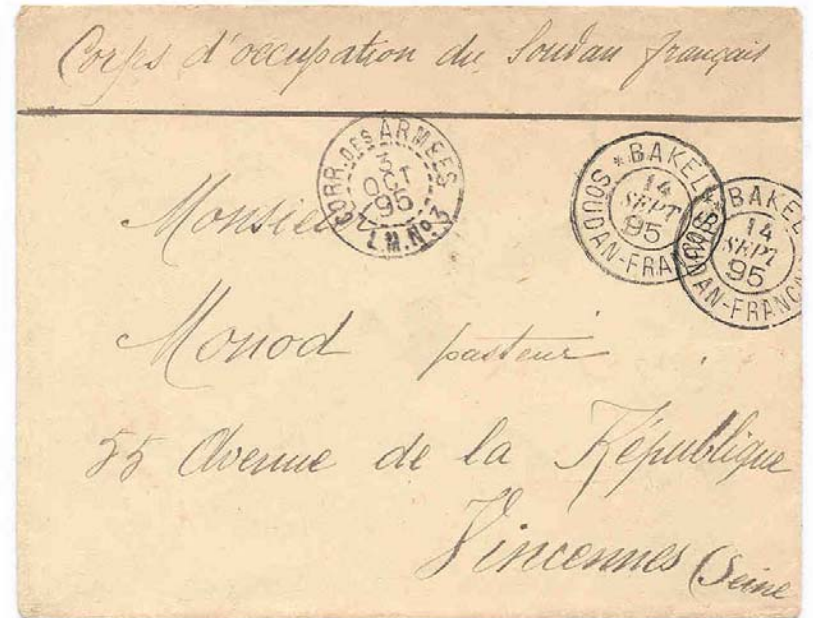 Corps d'occupation du Soudan français
CORR. DES ARMEES
3
OCT
95
L.M. No 3
* BAKEL *
14
SEPT
95
SOUDAN-FRANÇAIS
* BAKEL
14
SEPT
95
SOUDAN-FRANÇAIS
Monsieur
Monod pasteur
55 Avenue de la République
Vincennes (Seine